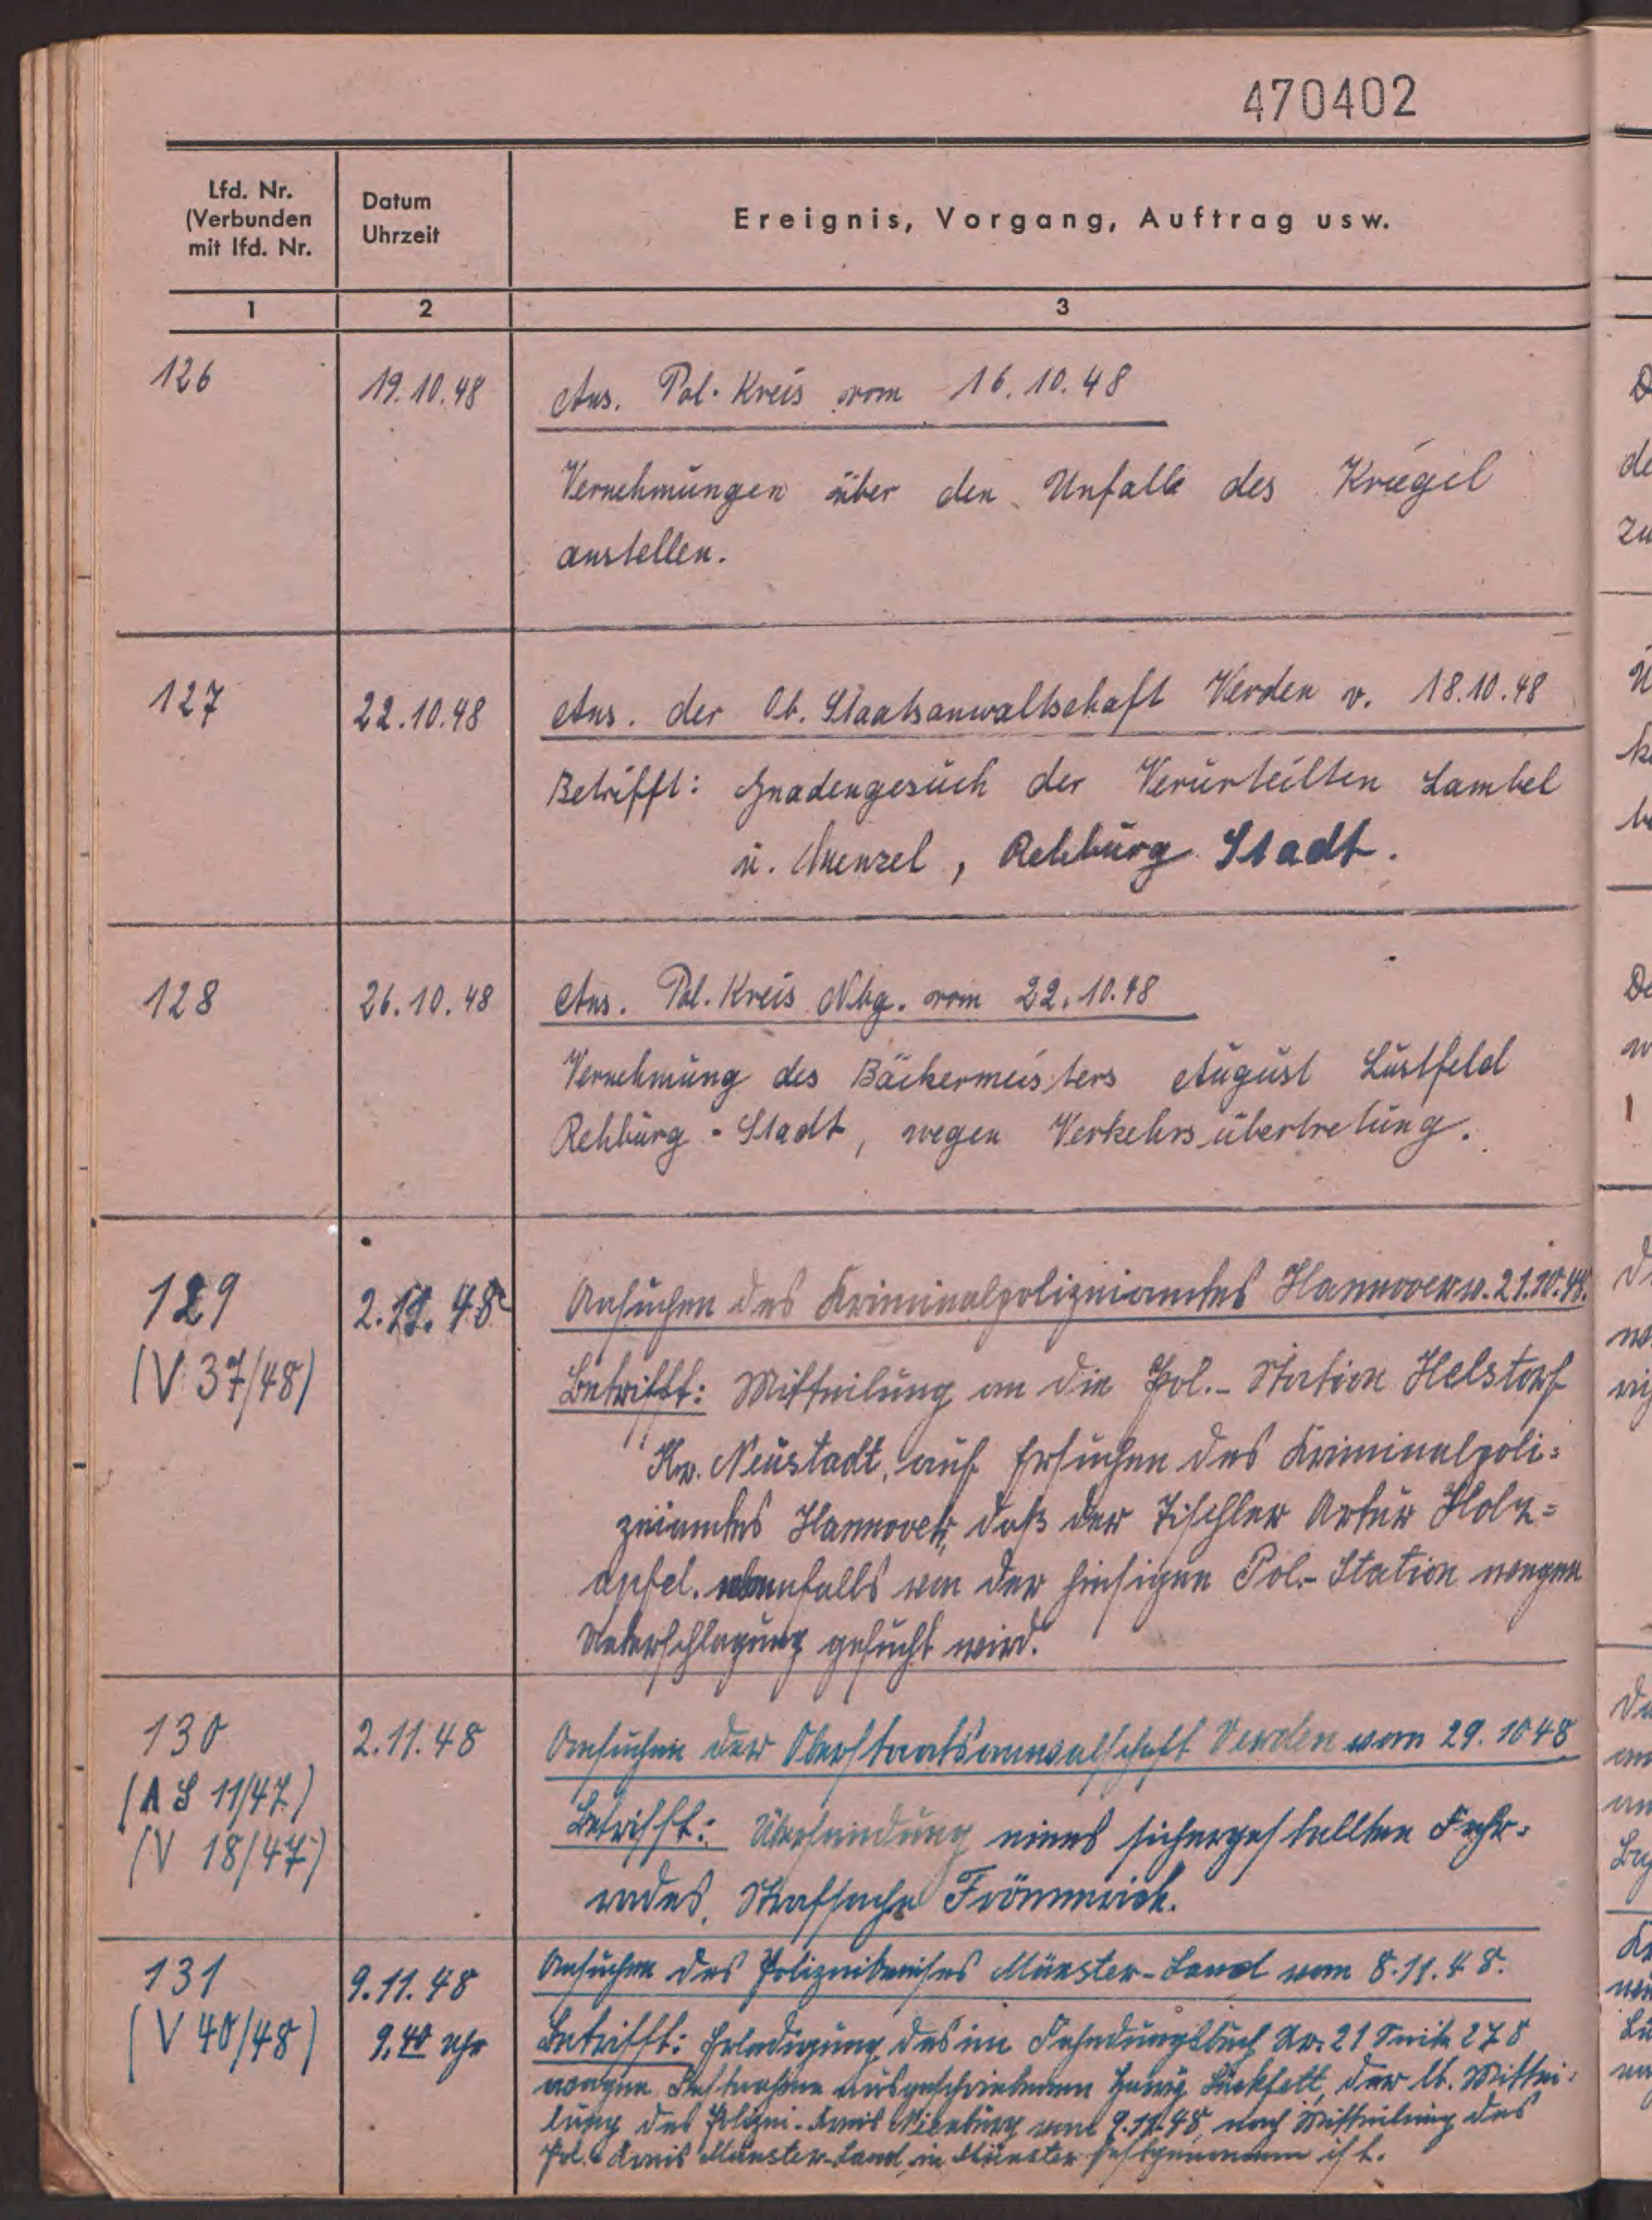 470402
Lfd. Nr.
(Verbunden
mit lfd. Nr.
Datum
Uhrzeit
Ereignis, Vorgang, Auftrag usw.
1 2 3
126 19.10.48 Ans. Pol. Kreis vom 16.10.48
Vernehmungen über den Unfall des Kriegel
anstellen.
127 22.10.48 Ans. der Ob. Staatsanwaltschaft Verden v. 18.10.48
Betrifft: Gnadengesuch der Verurteilten Lambel
u. Menzel, Rehburg Stadt.
128 26.10.48 Ans. Pol. Kreis Nbg. vom 22.10.48
Vernehmung des Bäckermeisters August Lustfeld
Rehburg-Stadt, wegen Verkehrsübertretung.
129 2.11.48 Ansuchen des Kriminalpolizeiamtes Hannover v. 21.10.48.
(V 37/48) Betrifft: Mitteilung an die Pol.-Station Helstorf
Kr. Neustadt, auf Ersuchen des Kriminalpoli=
zeiamtes Hannover, daß der Tischler Artur Holz=
apfel ebenfalls von der hiesigen Pol.-Station wegen
Unterschlagung gesucht wird.
130 2.11.48 Ansuchen der Oberstaatsanwaltschaft Verden vom 29.10.48
(A S 11/47) Betrifft: Übersendung eines sichergestellten Fahr=
(V 18/47) rades, Strafsache Frömmrich.
131 9.11.48 Ansuchen des Polizeikreises Münster-Land vom 8.11.48.
(V 40/48) 9.40 Uhr Betrifft: Erledigung des im Fahndungsbuch Nr. 21 Seite 278
wegen Festnahme ausgeschriebenen der lt. Mittei=
lung des Polizei-Kreis Nienburg vom 9.11.48, nach Mitteilung des
Pol. Kreis Münster-Land, in Münster festgenommen ist.